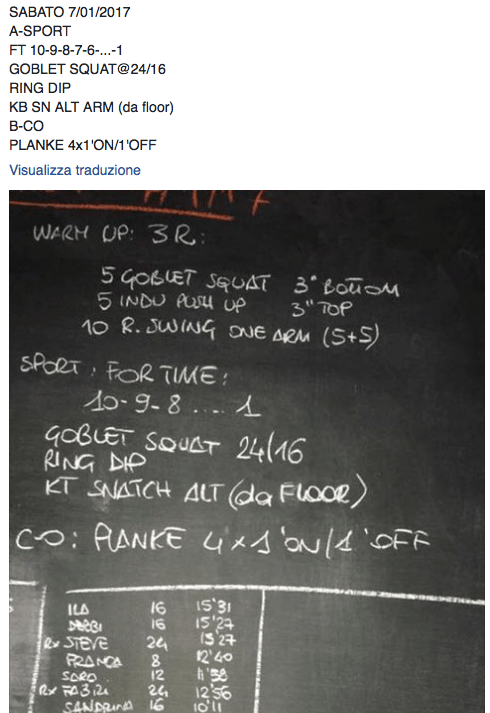 SABATO 7/01/2017
A-SPORT
FT 10-9-8-7-6-...-1
GOBLET SQUAT@24/16
RING DIP
KB SN ALT ARM (da floor)
B-CO
PLANKE 4x1'ON/1'OFF
Visualizza traduzione
WARM UP: 3R:
5 GOBLET SQUAT 3" BOTTOM
5 INDU PUSH UP 3" TOP
10 R. SWING ONE ARM (5+5)
SPORT: FOR TIME:
10-9-8 .... 1
GOBLET SQUAT 24/16
RING DIP
KT SNATCH ALT (da FLOOR)
CO: PLANKE 4x1'ON/1'OFF
ILA 16 15'31
16 15'27
Rx STEVE 24 13'27
FRANCA 8 12'40
SARO 12 11'58
Rx 24 12'56
SANDRINA 16 10'11